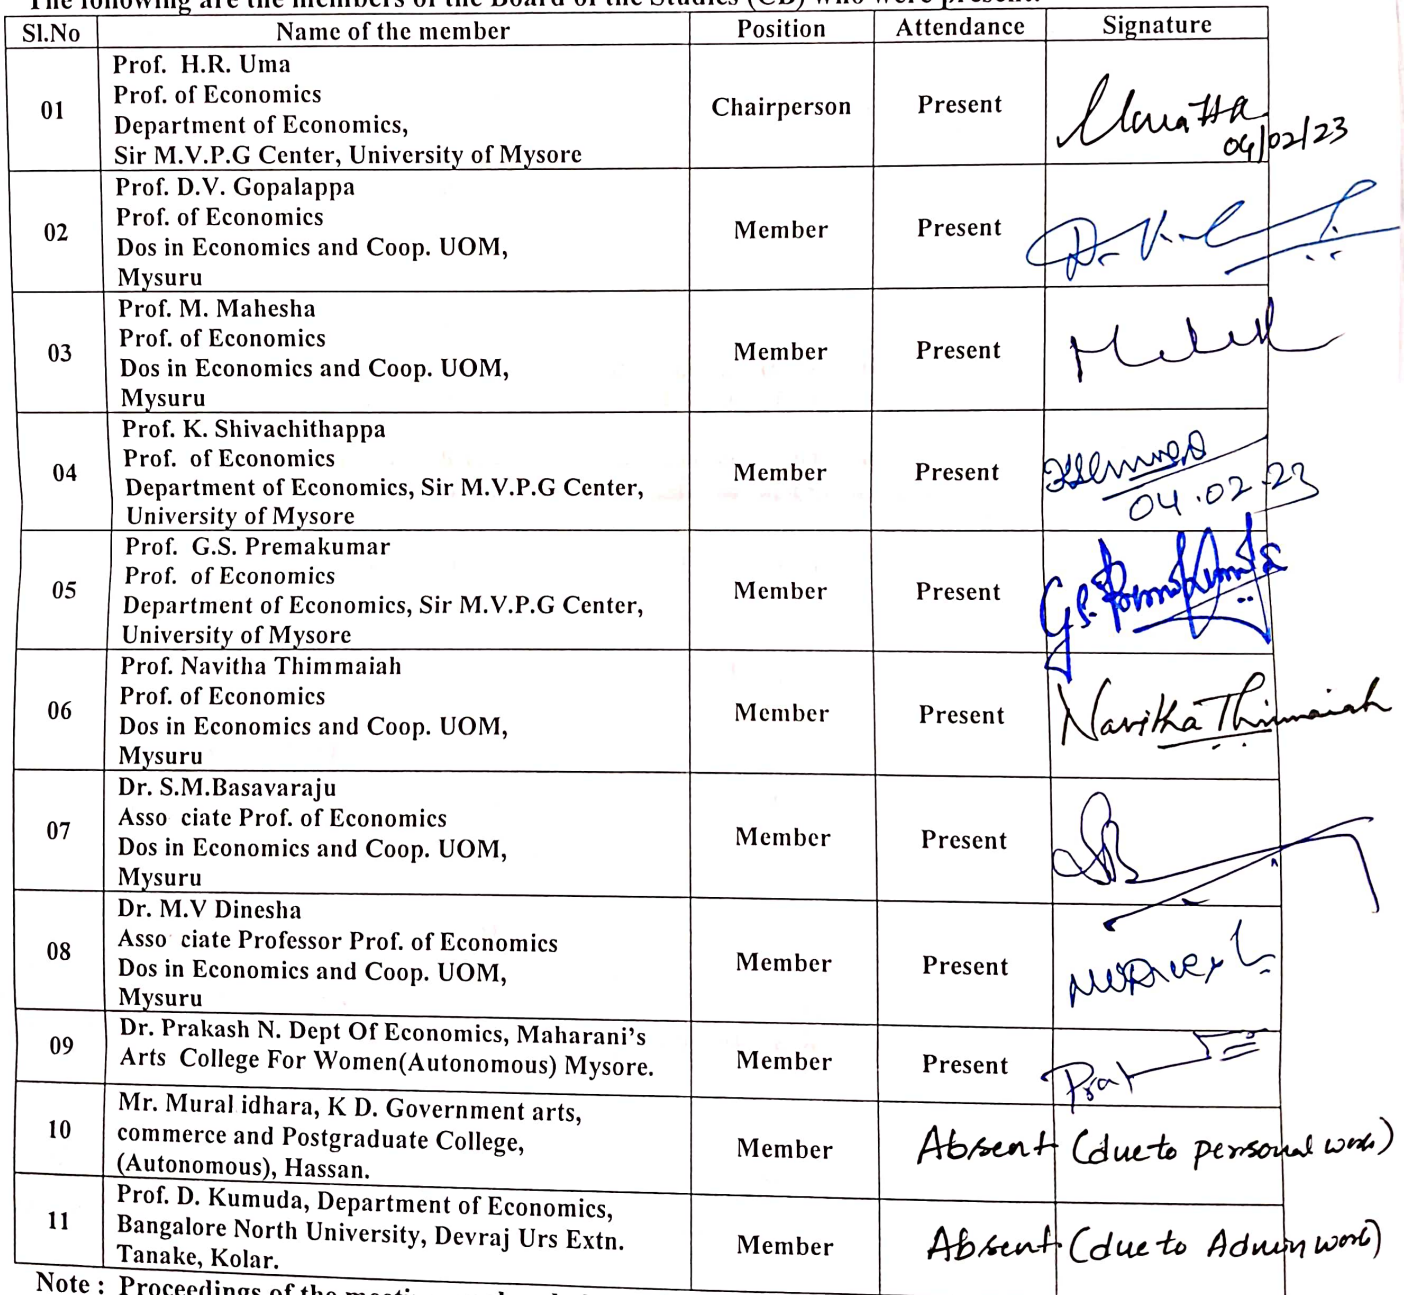 The following are the members of the Board of the Studies (CB) who were present.
Sl.No Name of the member Position Attendance Signature
01 Prof. H.R. Uma
Prof. of Economics
Department of Economics,
Sir M.V.P.G Center, University of Mysore
Chairperson Present
04/02/23
02 Prof. D.V. Gopalappa
Prof. of Economics
Dos in Economics and Coop. UOM,
Mysuru
Member Present
03 Prof. M. Mahesha
Prof. of Economics
Dos in Economics and Coop. UOM,
Mysuru
Member Present
04 Prof. K. Shivachithappa
Prof. of Economics
Department of Economics, Sir M.V.P.G Center,
University of Mysore
Member Present
04.02.23
05 Prof. G.S. Premakumar
Prof. of Economics
Department of Economics, Sir M.V.P.G Center,
University of Mysore
Member Present
06 Prof. Navitha Thimmaiah
Prof. of Economics
Dos in Economics and Coop. UOM,
Mysuru
Member Present Navitha Thimmaiah
07 Dr. S.M.Basavaraju
Asso ciate Prof. of Economics
Dos in Economics and Coop. UOM,
Mysuru
Member Present
08 Dr. M.V Dinesha
Asso ciate Professor Prof. of Economics
Dos in Economics and Coop. UOM,
Mysuru
Member Present
09 Dr. Prakash N. Dept Of Economics, Maharani's
Arts College For Women(Autonomous) Mysore.
Member Present
10 Mr. Mural idhara, K D. Government arts,
commerce and Postgraduate College,
(Autonomous), Hassan.
Member Absent (due to personal work)
11 Prof. D. Kumuda, Department of Economics,
Bangalore North University, Devraj Urs Extn.
Tanake, Kolar.
Member Absent (due to Admin work)
Note : Proceedings of the